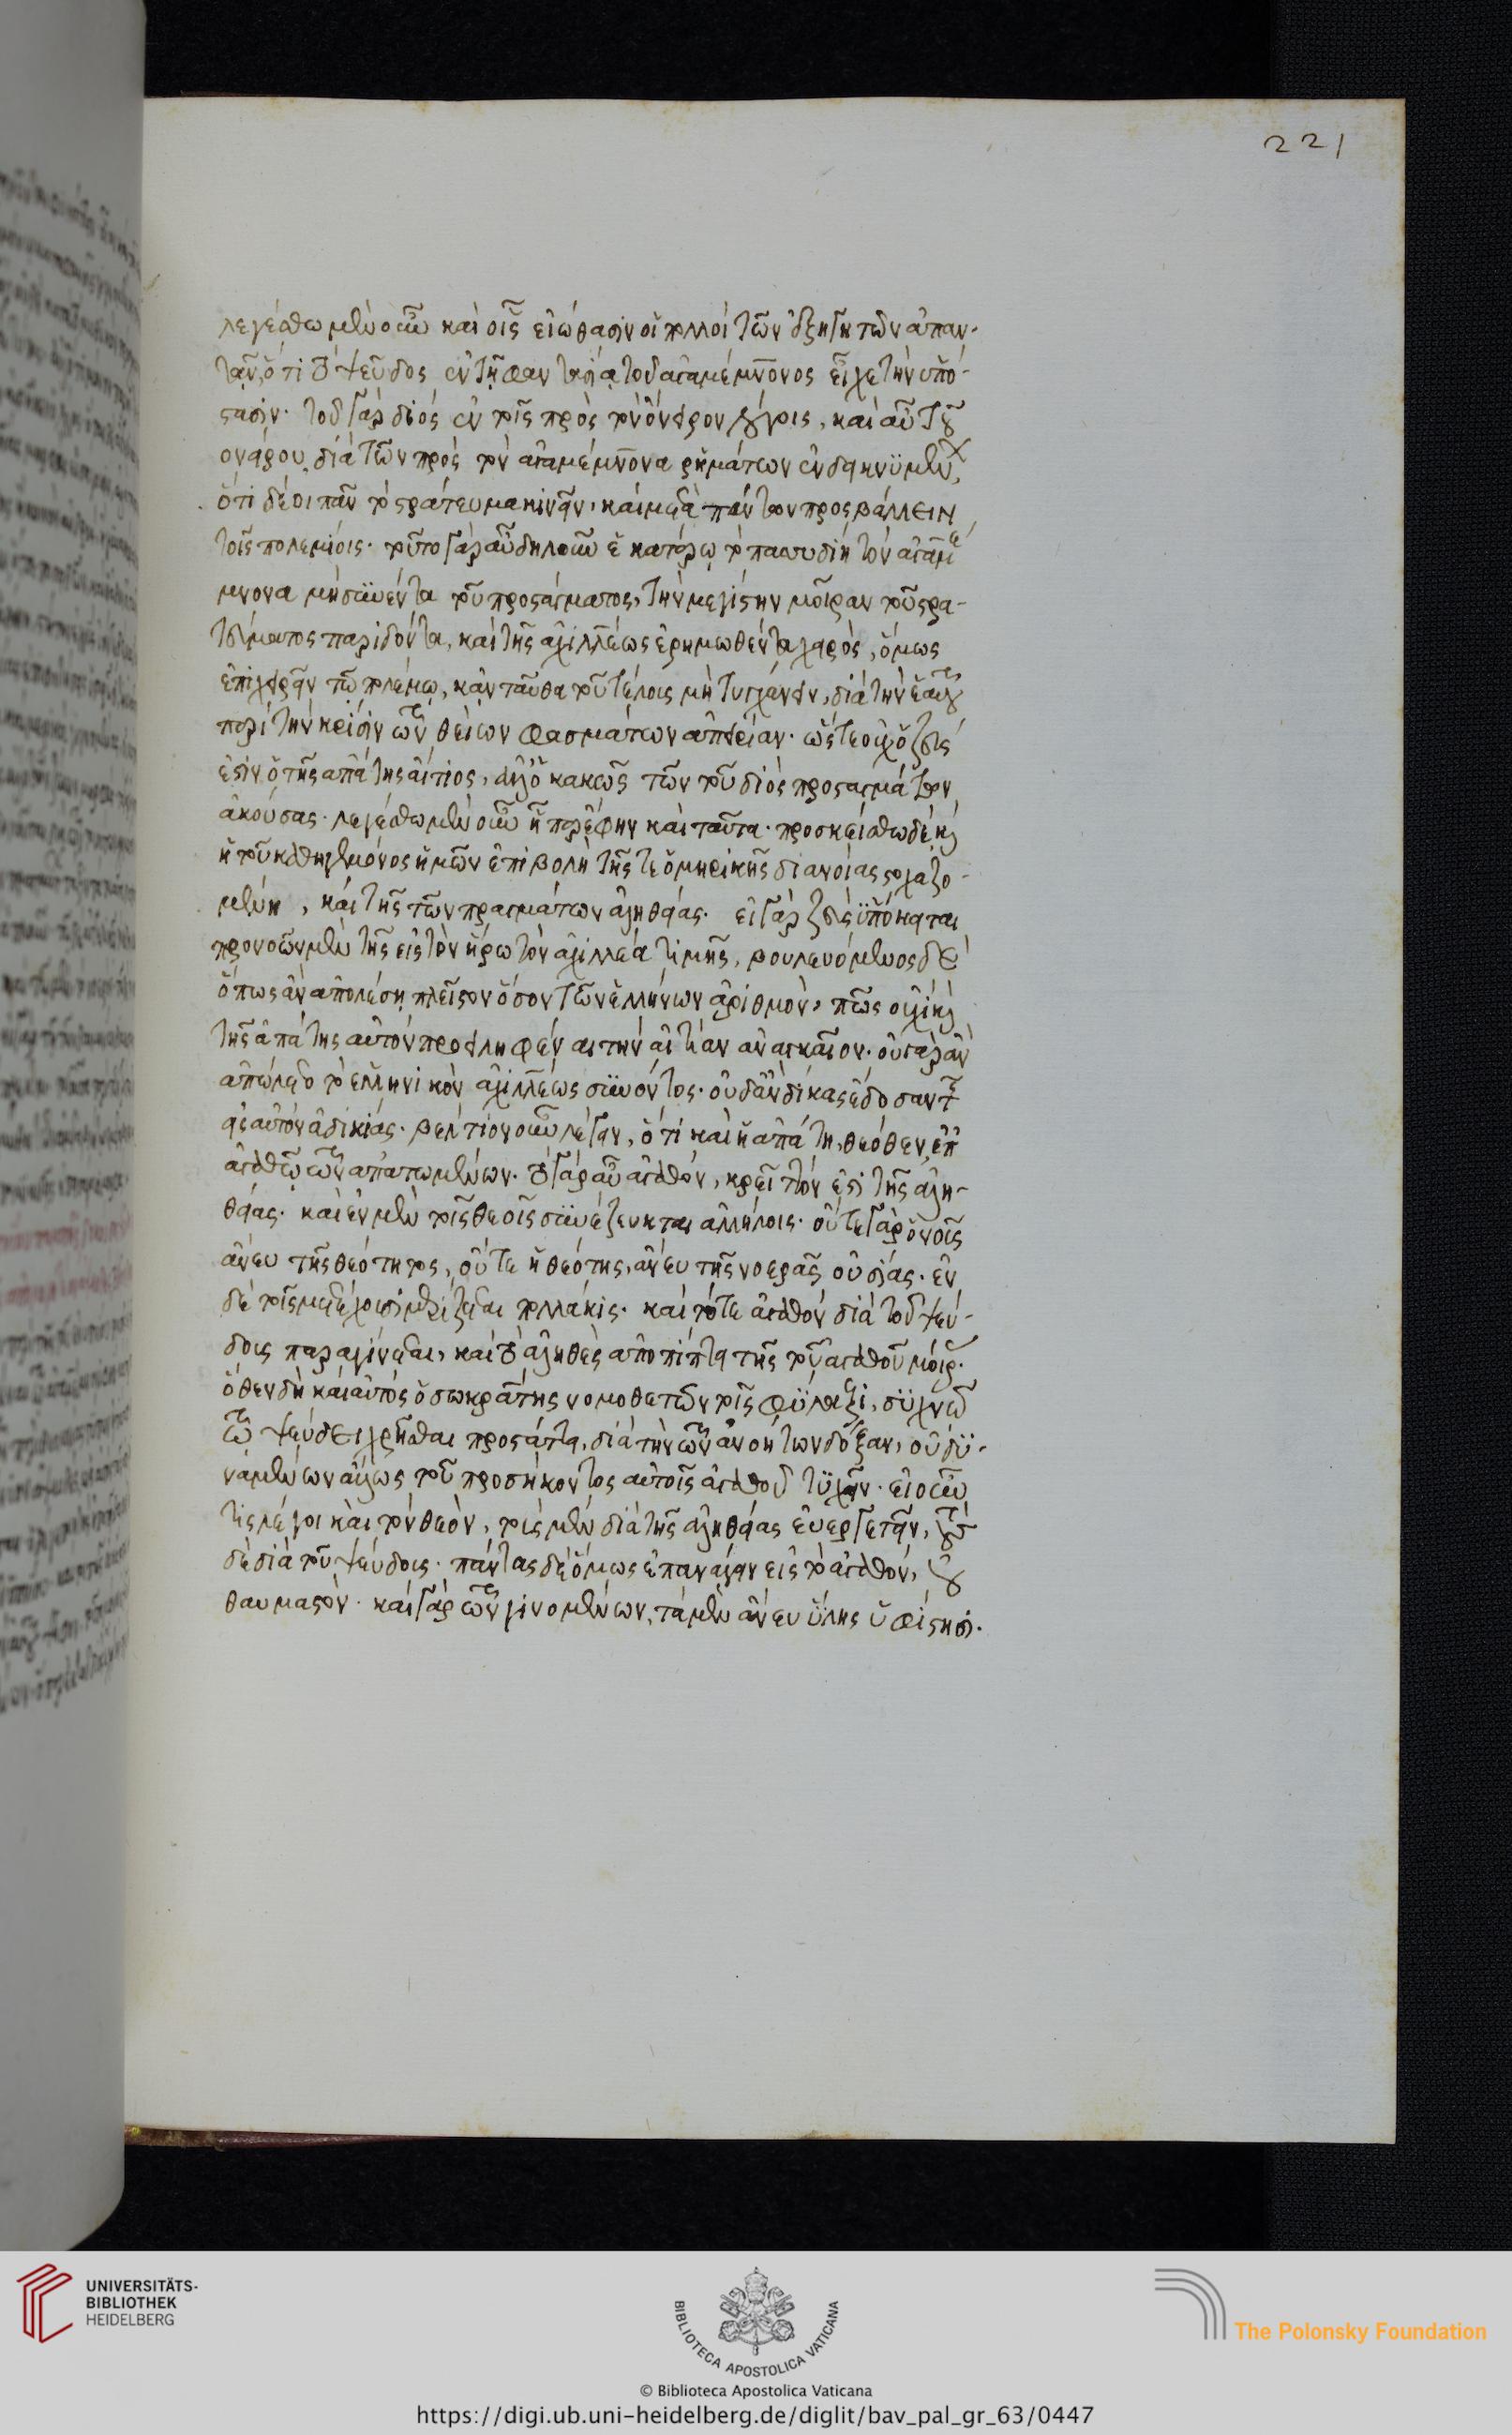 221
λεγέσθω μὲν οὖν καὶ οἷς εἰώθασιν οἱ πολλοὶ τῶν ἐξηγητῶν ἀπαν-
τᾶν, ὅτι τὸ ψεῦδος ἐν τῇ φαντασίᾳ τοῦ ἀγαμέμνονος εἶχε τὴν ὑπό-
στασιν. τοῦ γὰρ διὸς ἐν τοῖς πρὸς τὸν ὄνειρον λόγοις, καὶ αὖ τοῦ
ὀνείρου διὰ τῶν πρὸς τὸν ἀγαμέμνονα ῥημάτων ἐνδεικνυμένων,
ὅτι δέοι πᾶν τὸ στράτευμα κινεῖν, καὶ μετὰ πάντων προσβάλλειν
τοῖς πολεμίοις. τοῦτο γὰρ αὖ δηλοῦν ἐν ἑκατέρῳ τὸ πανσυδίῃ τὸν ἀγαμέ-
μνονα μὴ συνέντα τοῦ προστάγματος, τὴν μεγίστην μοῖραν τοῦ στρα-
τεύματος παριδόντα, καὶ τῆς ἀχιλλέως ἐρημωθέντα χειρὸς, ὅμως
ἐπιχειρεῖν τῷ πολέμῳ, κἀνταῦθα τοῦ τέλους μὴ τυγχάνειν, διὰ τὴν ἑαυτοῦ
περὶ τὴν κρίσιν τῶν θείων φασμάτων ἀπειρίαν. ὥστε οὐχ ὁ ζεύς
ἐστιν ὁ τῆς ἀπάτης αἴτιος, ἀλλ' ὁ κακῶς τῶν τοῦ διὸς προσταγμάτων
ἀκούσας. λεγέσθω μὲν οὖν ᾗπερ ἔφην καὶ ταῦτα. προσκείσθω δὲ καὶ
ἡ τοῦ καθηγεμόνος ἡμῶν ἐπιβολὴ τῆς τε ὁμηρικῆς διανοίας στοχαζο-
μένη, καὶ τῆς τῶν πραγμάτων ἀληθείας. εἰ γὰρ ζεὺς ὑπόκειται
προνοῶν μὲν τῆς εἰς τὸν ἥρω τὸν ἀχιλλέα τιμῆς, βουλευόμενος δὲ
ὅπως ἂν ἀπολέσῃ πλεῖστον ὅσον τῶν ἑλλήνων ἀριθμὸν, πῶς οὐχὶ καὶ
τῆς ἀπάτης αὐτὸν προειληφέναι τὴν αἰτίαν ἀναγκαῖον. οὐ γὰρ ἂν
ἀπώλετο τὸ ἑλληνικὸν ἀχιλλέως συνόντος. οὐδ' ἂν δίκας ἔδοσαν τῆς
εἰς αὐτὸν ἀδικίας. βέλτιον οὖν λέγειν, ὅτι καὶ ἡ ἀπάτη, θεόθεν, ἐπ'
ἀγαθῷ τῶν ἀπατωμένων. τὸ γὰρ αὖ ἀγαθὸν, κρεῖττόν ἐστι τῆς ἀλη-
θείας. καὶ ἐν μὲν τοῖς θεοῖς συνέζευκται ἀλλήλοις. οὔτε γὰρ ὁ νοῦς
ἄνευ τῆς θεότητος, οὔτε ἡ θεότης, ἄνευ τῆς νοερᾶς οὐσίας. ἐν
δὲ τοῖς μετέχουσι μερίζεται πολλάκις. καὶ τό τε ἀγαθὸν διὰ τοῦ ψεύ-
δους παραγίνεται, καὶ τὸ ἀληθὲς ἀποπίπτει τῆς τοῦ ἀγαθοῦ μοίρας.
ὅθεν δὴ καὶ αὐτὸς ὁ σωκράτης νομοθετῶν τοῖς φύλαξι, συχνῷ
τῷ ψεύδει χρῆσθαι προστάττει, διὰ τὴν τῶν ἀνοήτων δόξαν, οὐ δυ-
ναμένων ἄλλως τοῦ προσήκοντος αὐτοῖς ἀγαθοῦ τυχεῖν. εἰ οὖν
τις λέγοι καὶ τὸν θεὸν, τοὺς μὲν διὰ τῆς ἀληθείας εὐεργετεῖν, τοὺς
δὲ διὰ τοῦ ψεύδους. πάντας δὲ ὅμως ἐπανάγειν εἰς τὸ ἀγαθὸν, οὐ
θαυμαστόν. καὶ γὰρ τῶν γινομένων, τὰ μὲν ἄνευ ὕλης ὑφίστησι.
UNIVERSITÄTS-
BIBLIOTHEK
HEIDELBERG
BIBLIOTECA APOSTOLICA VATICANA
The Polonsky Foundation
© Biblioteca Apostolica Vaticana
https://digi.ub.uni-heidelberg.de/diglit/bav_pal_gr_63/0447